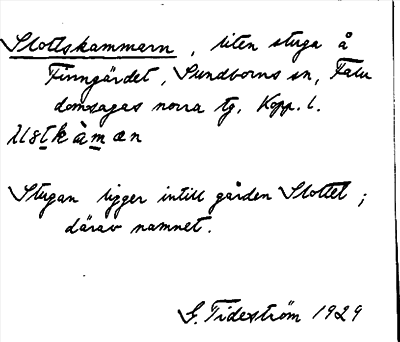 Slottskammarn, liten stuga å
Finngärdet, Sundborns sn, Falu
domsagas norra tg, Kopp. l.
Stugan ligger intill gården Slottet;
därav namnet.
G. Tideström 1929